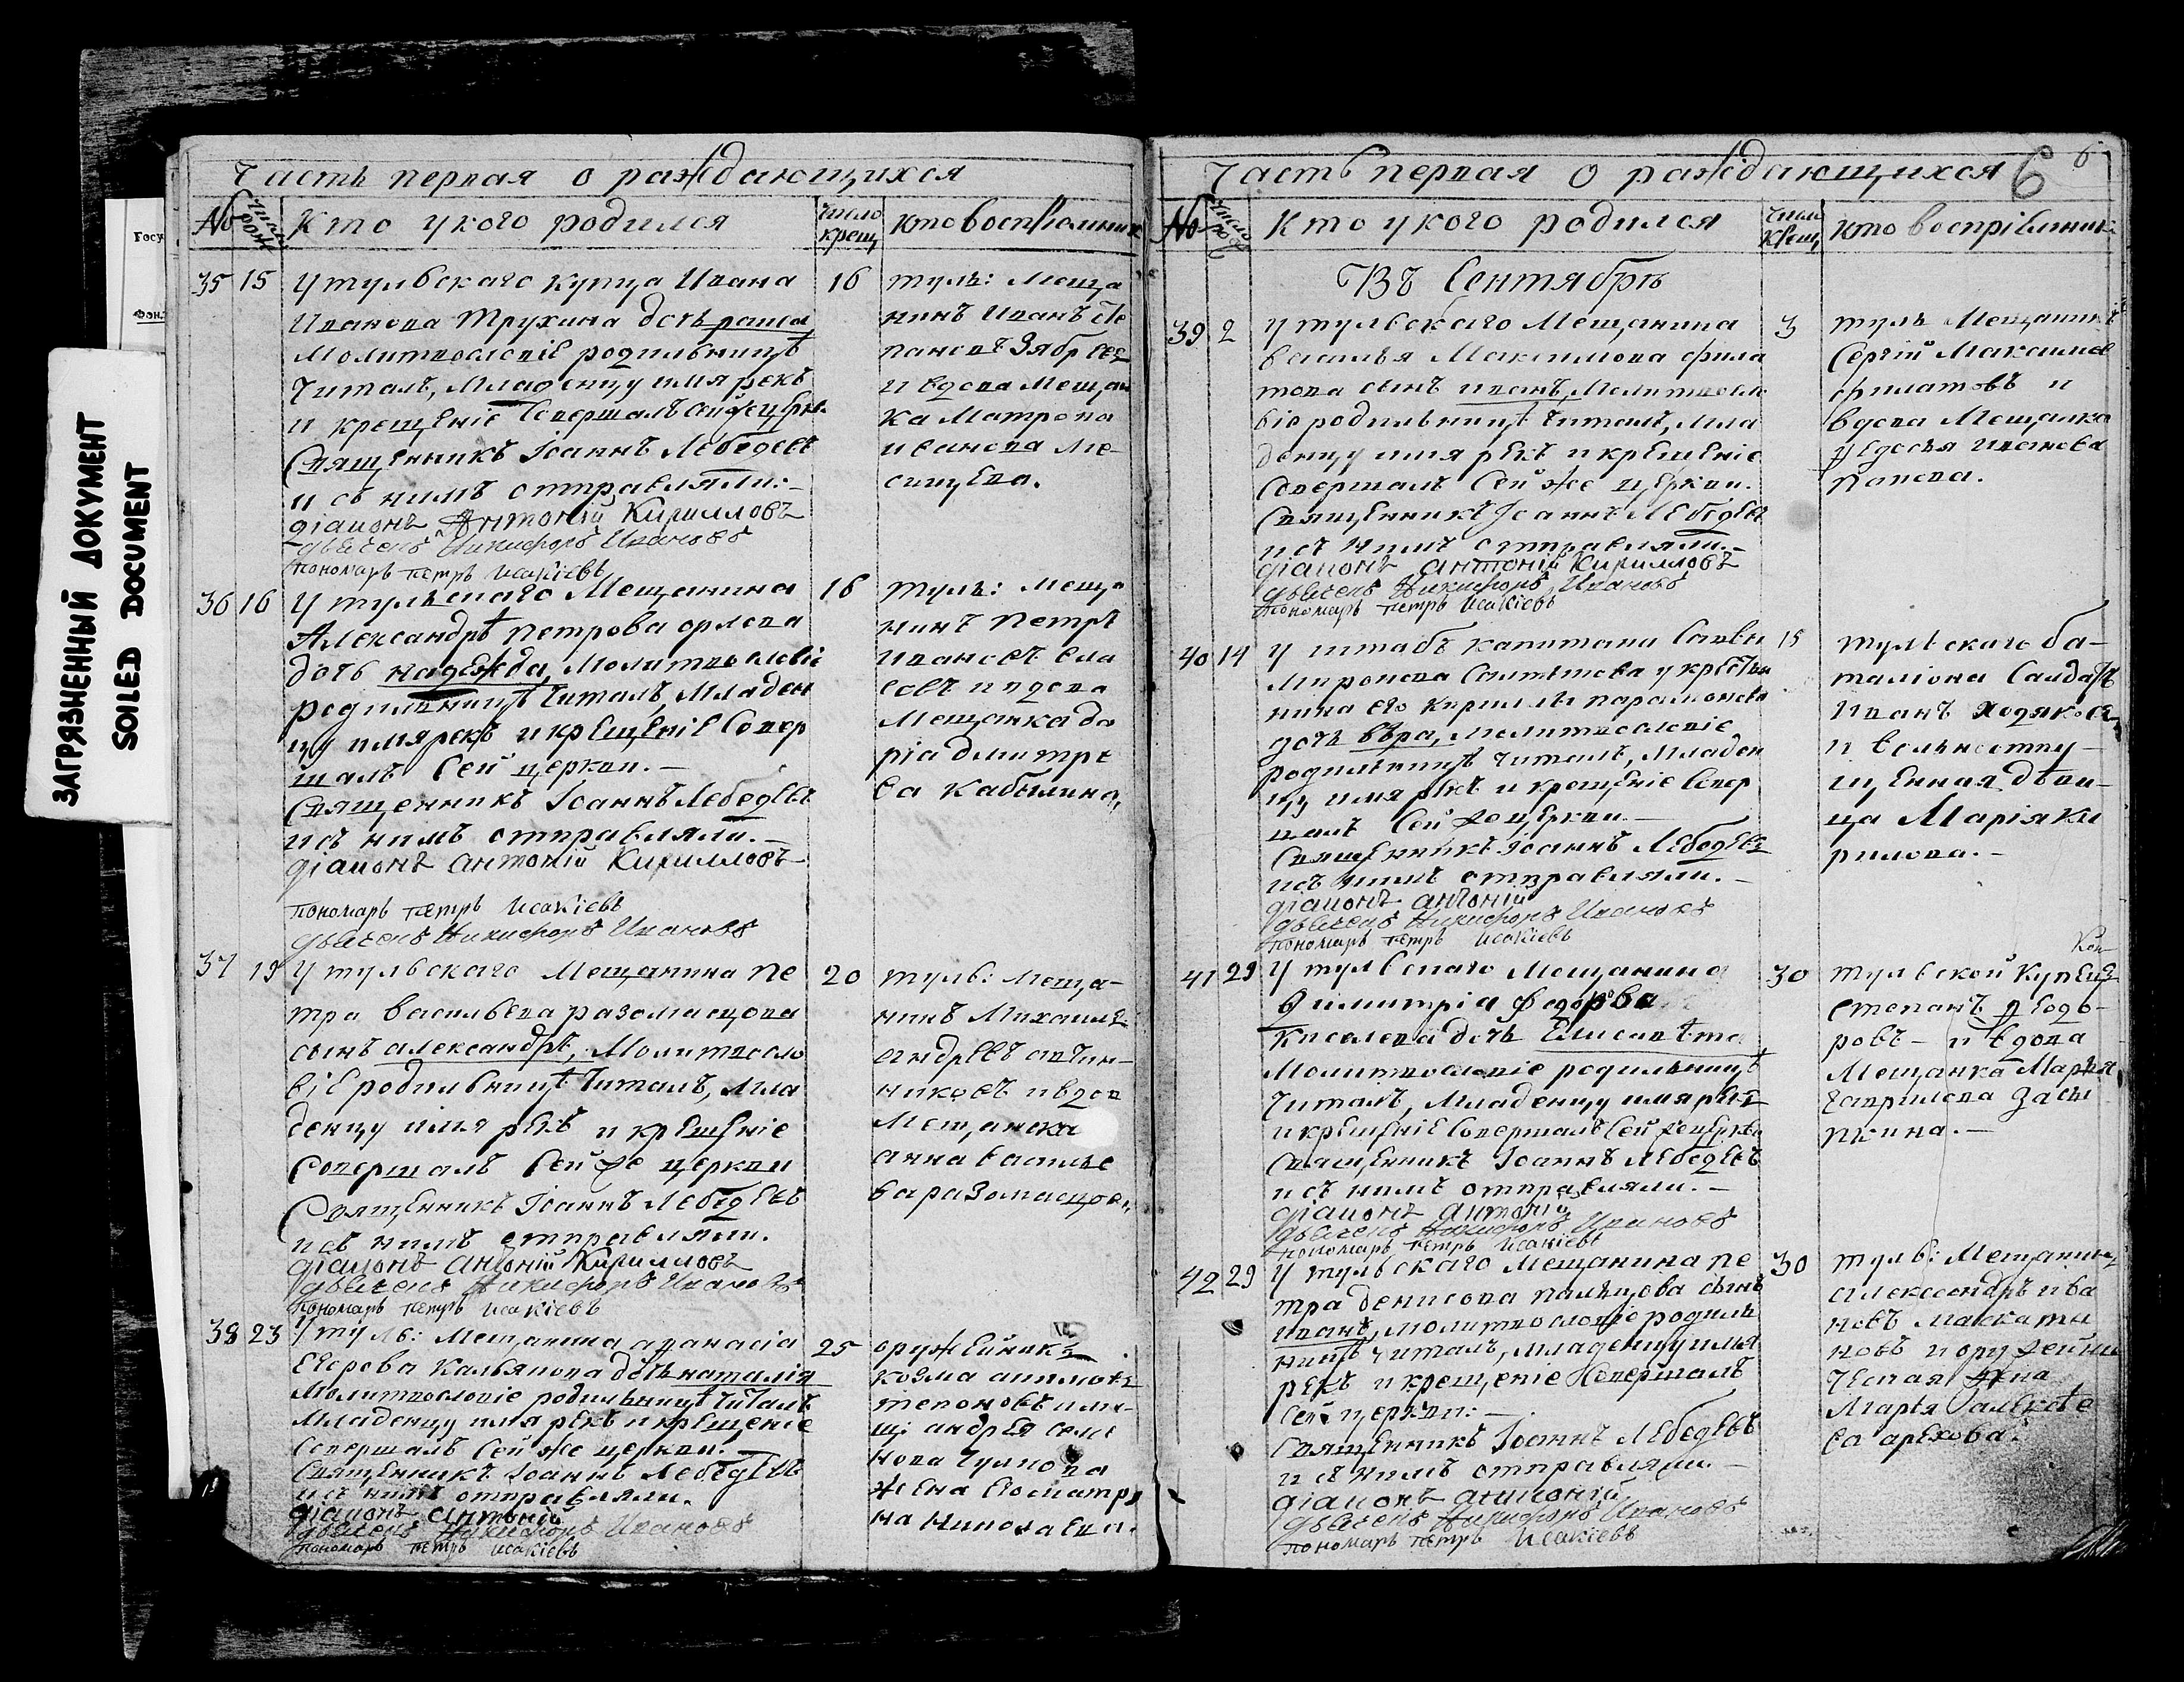 ЗАГРЯЗНЕННЫЙ ДОКУМЕНТ
SOILED DOCUMENT
Часть первая о раждающихся
No Число рож Кто у кого родился число крещ кто восприемник
35 15 У тульскаго купца Ивана
Иванова Трухина дочь раиса,
Молитвословіе родильницѣ
Читалъ, Младенцу имя рекъ
и крещеніе Совершалъ сей же церкви
Священникъ Іоаннъ Лебедевъ
и съ нимъ отправляли:-
діаконъ Антоній Кирилловъ
дьячекъ Никифоръ Ивановъ
пономарь петръ Исакіевъ
16 туль: Меща
нинъ Иванъ Сте
пановъ Зябрев
и вдова Мещан
ка Матрона
иванова Ме-
синцева.
36 16 У тульскаго Мещанина
Александрѣ петрова орлова
дочь надежда, Молитвословіе
родильницѣ Читалъ, Младен
цу имя рекъ и крещеніе Совер
шалъ Сей церкви.-
Священникъ Іоаннъ Лебедевъ
и съ нимъ отправляли.-
діаконъ антоній Кирилловъ
пономарь петръ Исакіевъ
дьячекъ Никифоръ Ивановъ
18 туль: Меща
нинъ петръ
Ивановъ
и вдова
Мещанка да
ріа дмитре
ва Кабылина,
37 19 У тульскаго Мещанина пе
тра васильева разомасцова
сынъ александръ, Молитвосло
віе родильницѣ Читалъ, Мла
денцу имя рекъ и крещеніе
Совершалъ Сей же церкви
Священникъ Іоаннъ Лебедевъ
и съ нимъ отправляли.
діаконъ антоній Кирилловъ
дьячекъ Никифоръ Ивановъ
пономарь петръ Исакіевъ
20 туль: меща-
нинъ Михаилъ
андреевъ овчин-
никовъ и вдов
Мещанска
анна василье
ва разомасцов.
38 23 У туль: Мещанина афанасіа
Егорова Кальянова дочь наталія
Молитвословіе родильницѣ читалъ
Младенцу имя рекъ и крещеніе
Совершалъ Сей же церкви.-
Священникъ Іоаннъ Лебедевъ
и съ нимъ отправляли.
діаконъ антоній
дьячекъ Никифоръ Ивановъ
пономарь петръ Исакіевъ
25 оружейникъ
козма
и ме-
щ: андрея семе
нова
жена Екоматри
на Николаева.
Часть первая о раждающихся 6 6
No Число Кто у кого родился число крещ кто восприемник
Въ Сентябрѣ
39 2 У тульскаго Мещанина
василья Максимова фила
това сынъ иванъ, Молитвосло
віе родильницѣ читалъ, Мла
денцу имя рекъ и крещеніе
Совершалъ Сей же церкви.
Священникъ Іоаннъ Лебедевъ
и съ нимъ отправляли.-
діаконъ антоній Кирилловъ
дьячекъ Никифоръ Ивановъ
пономарь петръ Исакіевъ
3 туль Мещанинъ
Сергій Максимов
филатовъ и
вдова Мещанка
федосья ивановa
попова.
40 14 У штабъ капитана Саввы
Миронова у крестья
нина его Кириллы парамонова
дочь вѣра, Молитвословіе
родильницѣ читалъ, Младен
цу имя рекъ и крещеніе Совер
шалъ Сей же церкви.-
Священникъ Іоаннъ Лебедевъ
и съ нимъ отправляли.-
діаконъ антоній
дьячекъ Никифоръ Ивановъ
пономарь петръ Исакіевъ
15 тульскаго ба-
таліона Салдатъ
Иванъ Ходяков
и вольноотпу-
щенная дѣви-
ца Марія Ки
рилова.-
41 29 У тульскаго Мещанина
Димитріа Федорова
Киселева дочь Елисавѣта
Молитвословіе родильницѣ
Читалъ, Младенцу имя рекъ
и крещеніе Совершалъ Сей же церкви
Священникъ Іоаннъ Лебедевъ
и съ нимъ отправляли.-
діаконъ антоній
дьячекъ Никифоръ Ивановъ
пономарь петръ Исакіевъ
30 тульской Купецъ
степанъ Федо-
ровъ - и вдова
Мещанка Марья
гаврилова Засы
пкина.-
42 29 У тульскаго Мещанина пе
тра денисова пальцова сынъ
иванъ, Молитвословіе родиль
ницѣ читалъ, младенцу имя
рекъ и крещеніе Совершалъ
Сей церкви:-
Священникъ Іоаннъ Лебедевъ
и съ нимъ отправляли.-
діаконъ антоній
дьячекъ Никифоръ Ивановъ
пономарь петръ Исакіевъ
30 туль: Мещанинъ
александръ ива
новъ
новъ и оружейни
ческая жена
Марья алексѣе
ва арехова.